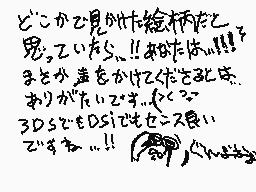 どこかで見かけた絵柄だと
思っていたら、、!! あなたは、、!!!?
まさか声をかけてくださるとは、、
ありがたいです、、(>く>っ
3DSでもDSiでもセンス良い
ですね、、!!